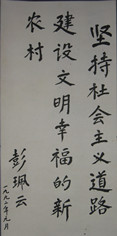 坚持社会主义道路
建设文明幸福的新
农村
彭珮云
一九九二年元月